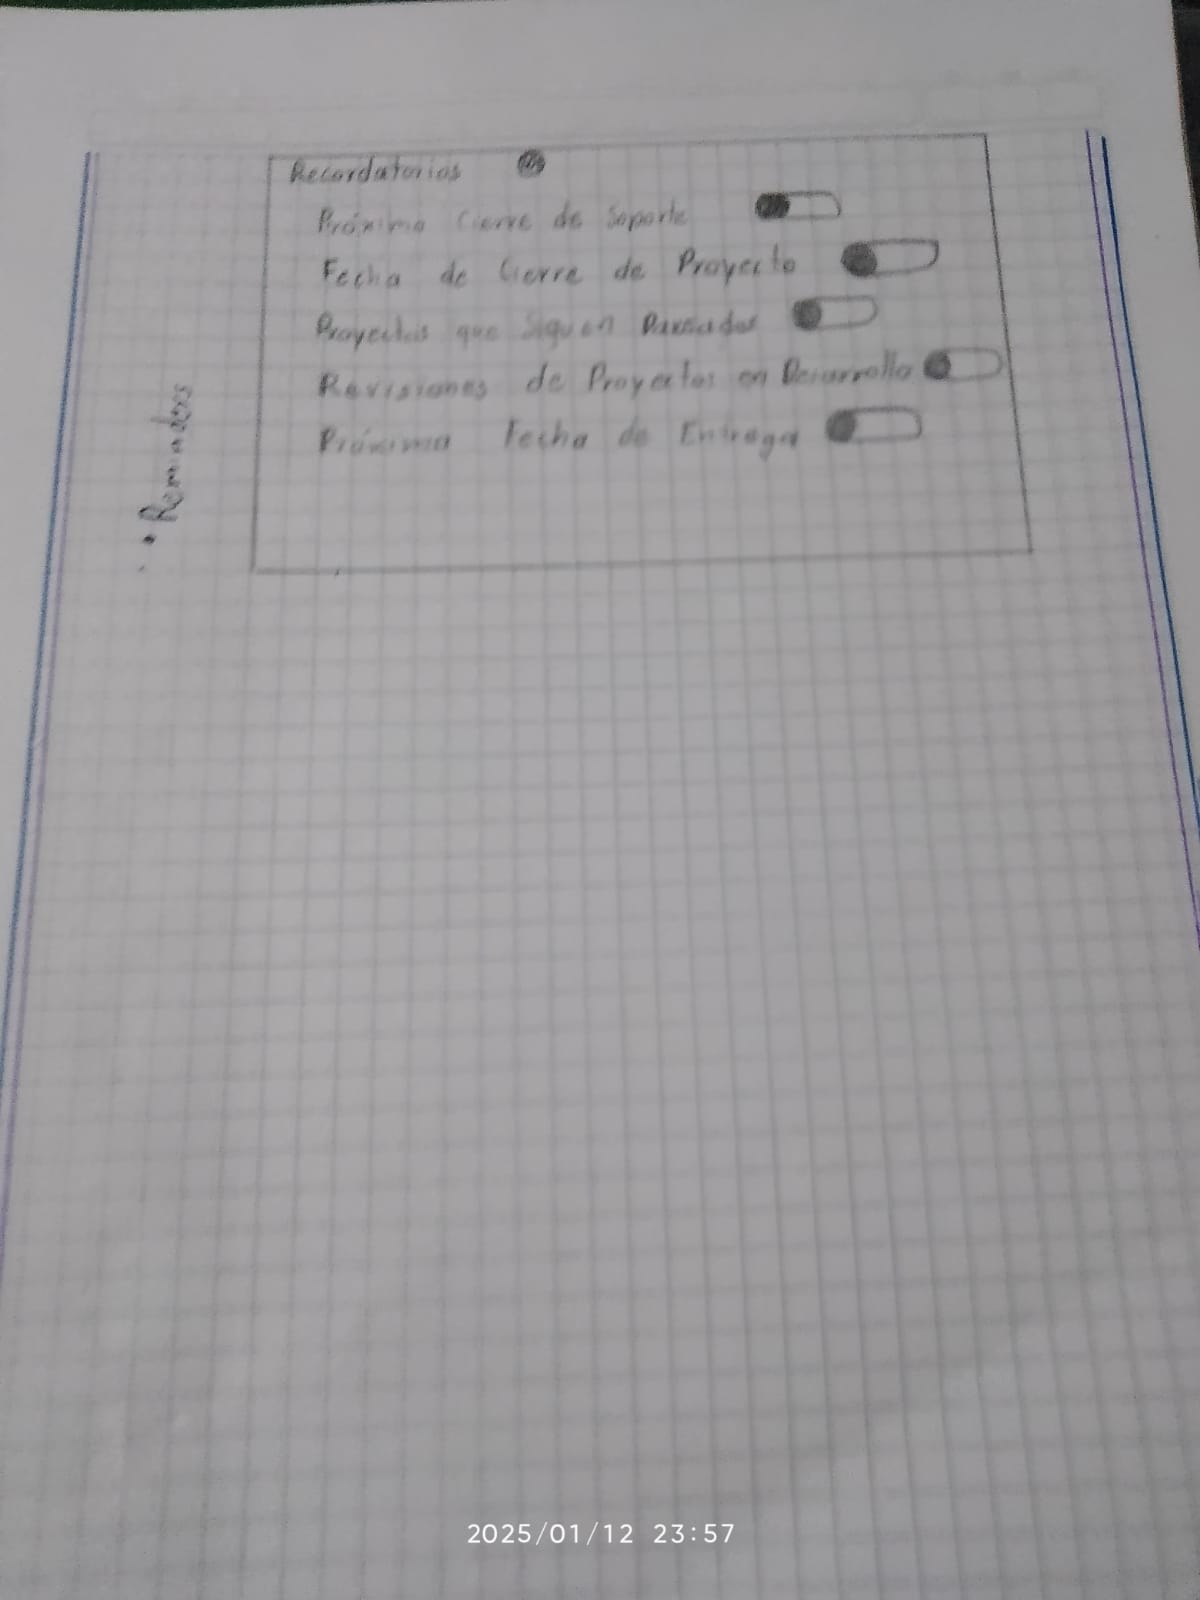 Recordatorios
Próximo Cierre de Soporte
Fecha de Cierre de Proyecto
Proyectos que Siguen Pausados
Revisiones de Proyectos en Desarrollo
Próxima Fecha de Entrega
2025/01/12 23:57